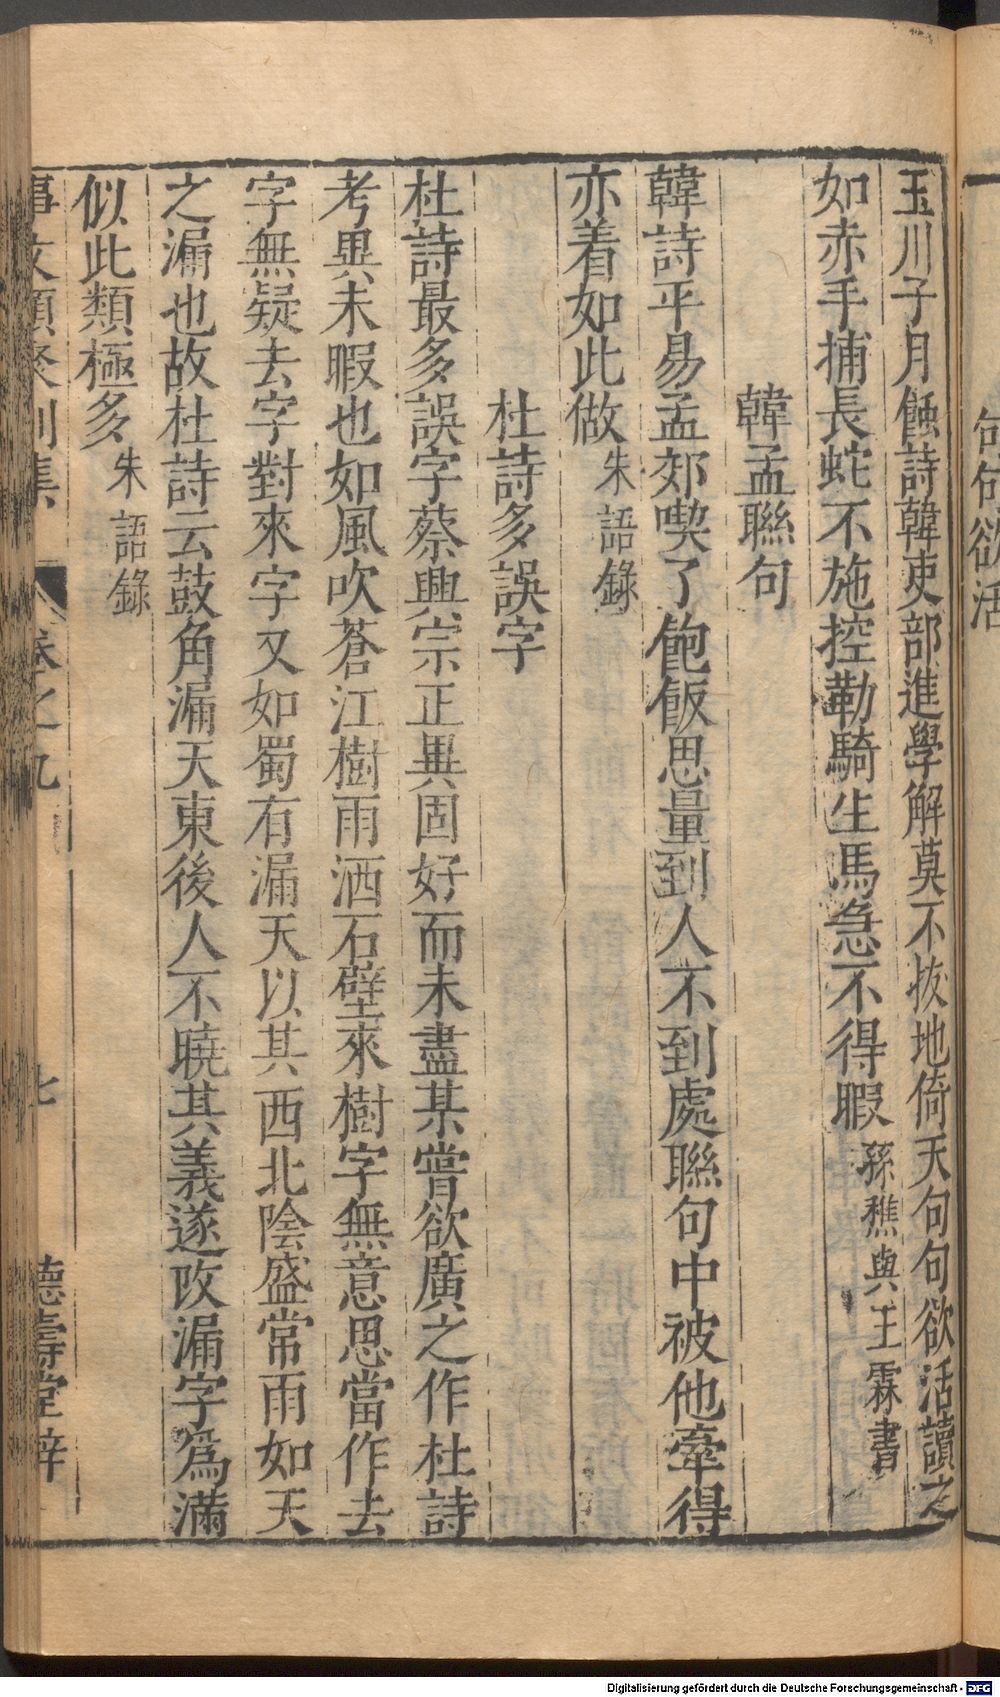 句句欲活
玉川子月蝕詩韓吏部進學解莫不拔地倚天句句欲活讀之
如赤手捕長蛇不施控勒騎生馬急不得暇孫樵與王霖書
韓孟聯句
韓詩平易孟郊喫了飽飯思量到人不到處聯句中被他牽得
亦着如此做朱語錄
杜詩多誤字
杜詩最多誤字蔡興宗正異固好而未盡某嘗欲廣之作杜詩
考異未暇也如風吹蒼江樹雨洒石壁來樹字無意思當作去
字無疑去字對來字又如蜀有漏天以其西北陰盛常雨如天
之漏也故杜詩云鼓角漏天東後人不曉其義遂改漏字爲滿
似此類極多朱語錄
事文類聚別集 卷之九 七 德壽堂梓
Digitalisierung gefördert durch die Deutsche Forschungsgemeinschaft - DFG